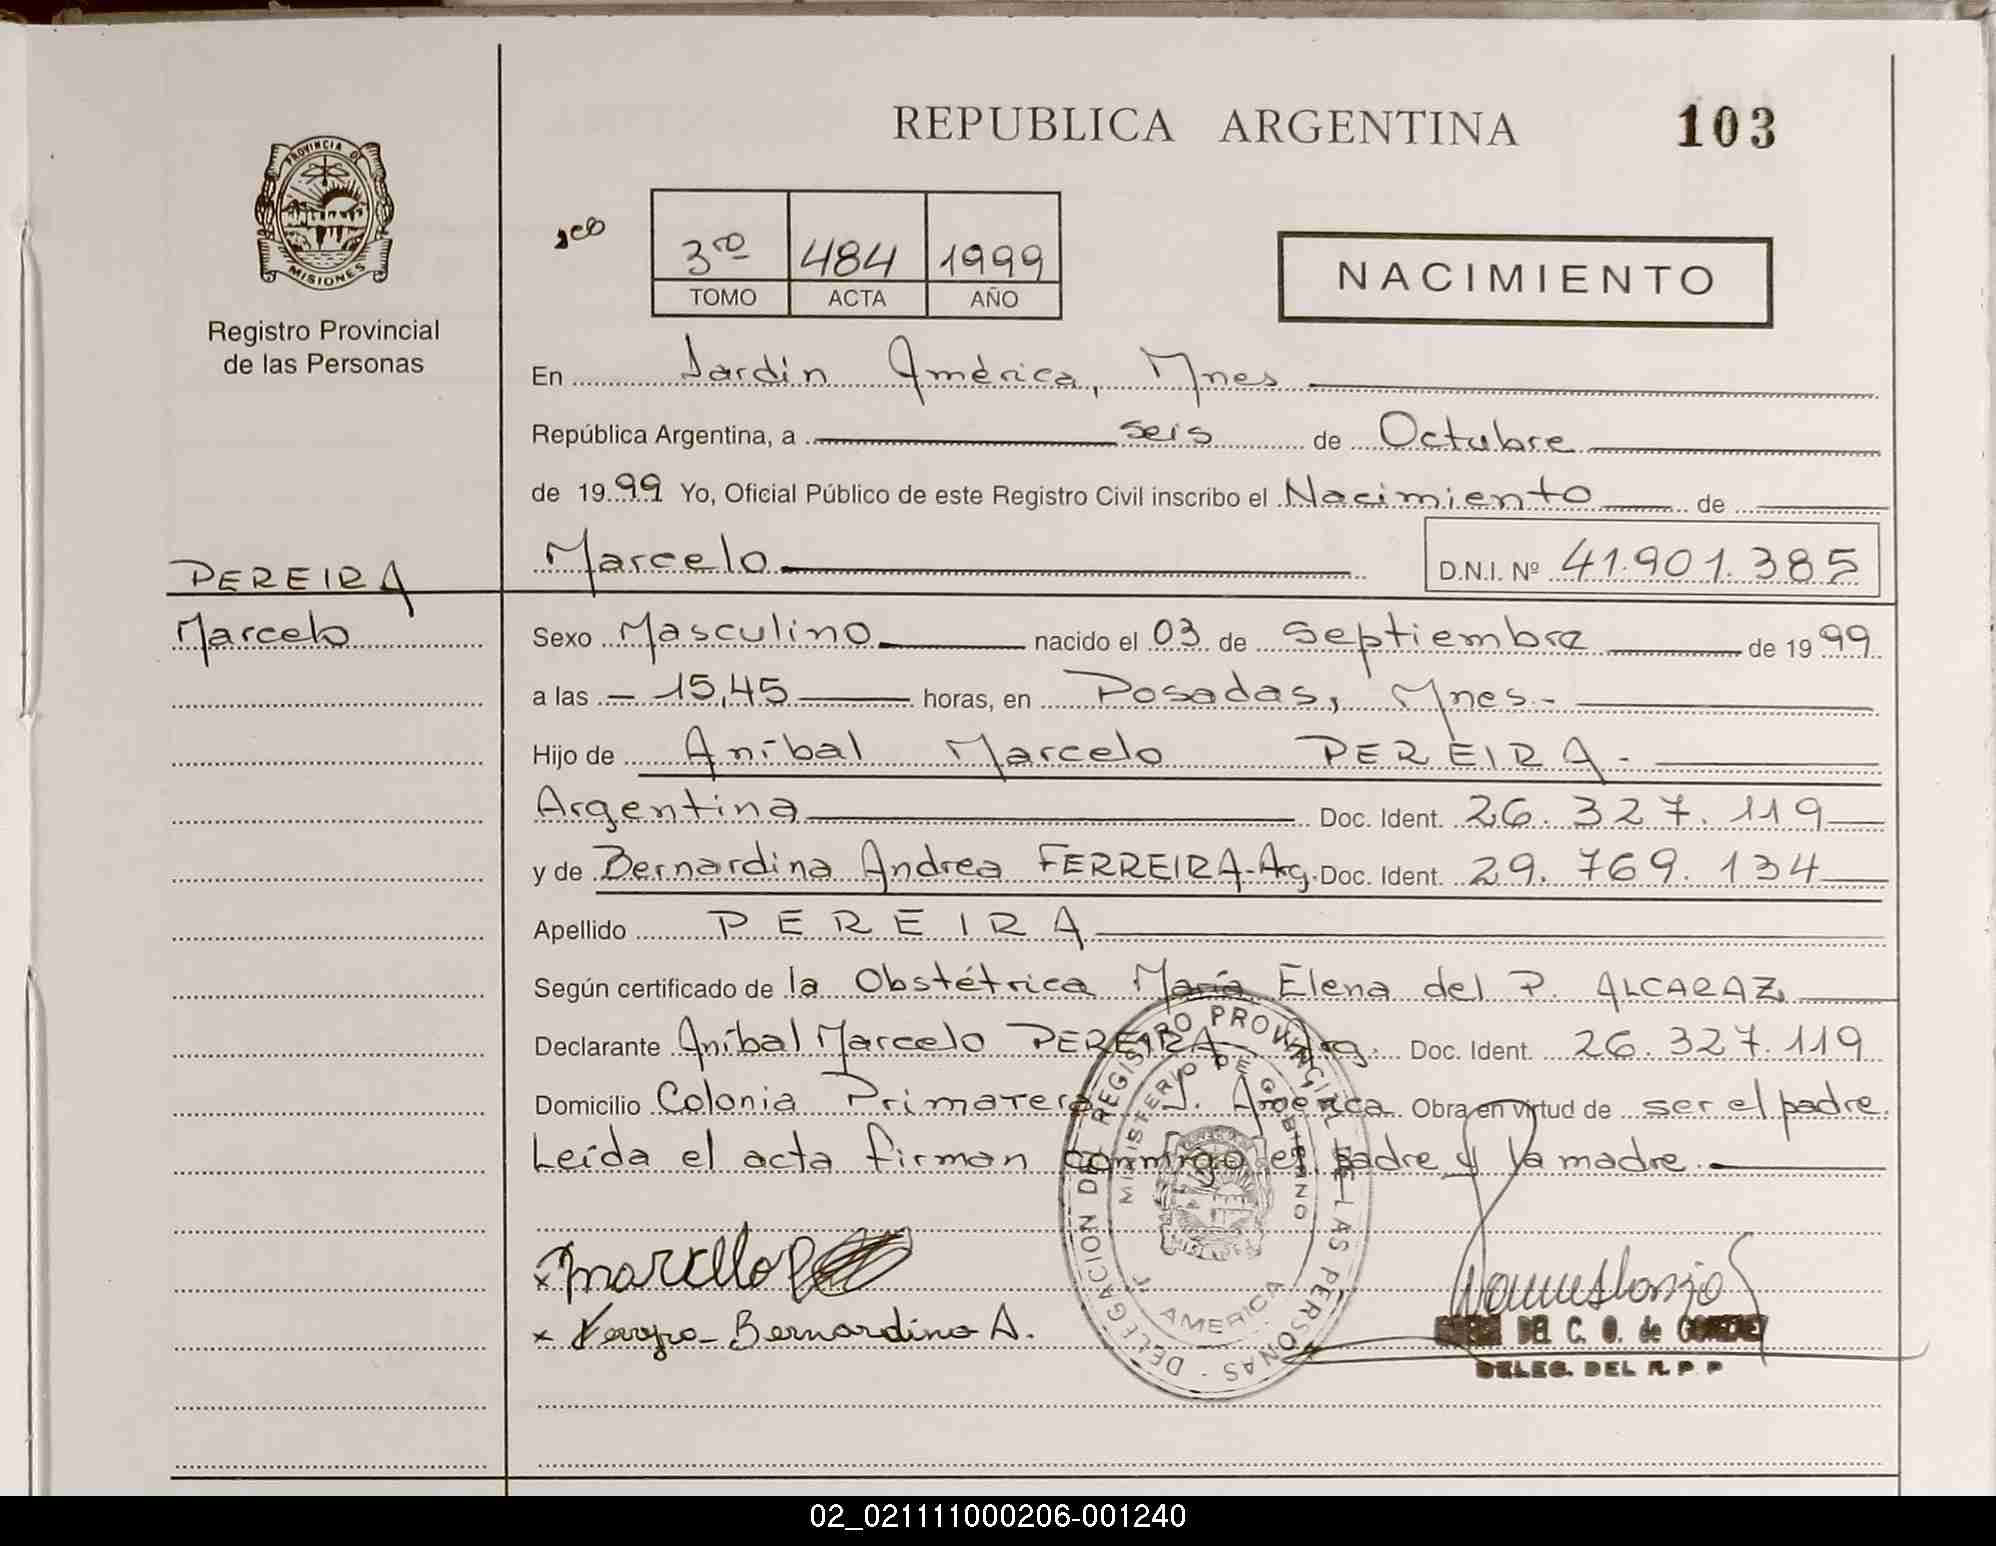 REPUBLICA ARGENTINA
103
PROVINCIA DE
MISIONES
Registro Provincial
de las Personas
3ro 484 1999
TOMO ACTA AÑO
NACIMIENTO
En Jardín América, Mnes
República Argentina, a seis de Octubre
de 1999 Yo, Oficial Público de este Registro Civil inscribo el Nacimiento de
Marcelo
D.N.I. Nº 41.901.385
PEREIRA
Marcelo
Sexo Masculino nacido el 03 de Septiembre de 1999
a las - 15,45 horas, en Posadas, Mnes.-
Hijo de Aníbal Marcelo PEREIRA.-
Argentina Doc. Ident. 26.327.119
y de Bernardina Andrea FERREIRA-Arg. Doc. Ident. 29.769.134
Apellido PEREIRA
Según certificado de la Obstétrica María Elena del P. ALCARAZ
Declarante Aníbal Marcelo PEREIRA Arg. Doc. Ident. 26.327.119
Domicilio Colonia Primavera J. América Obra en virtud de ser el padre.
Leída el acta firman conmigo el padre y la madre.
DELEGACION DEL REGISTRO PROVINCIAL DE LAS PERSONAS
MINISTERIO DE GOBIERNO
J. AMERICA
MISIONES
x Marcelo
x Bernardina A.
DEL C. O. de
DELEG. DEL R. P. P
02_021111000206-001240